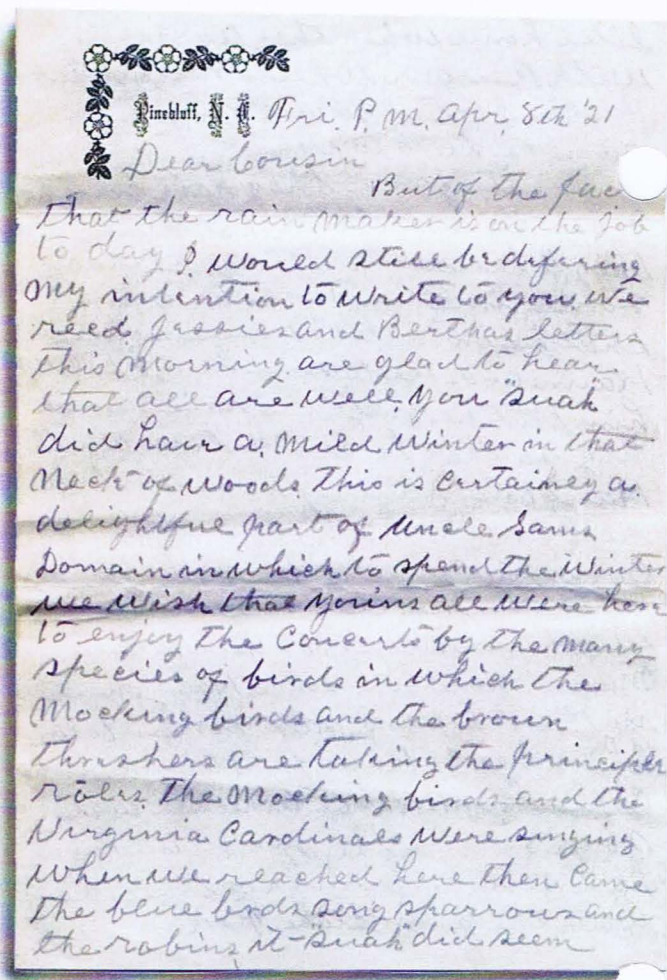 Pinebluff, N. C. Fri. P. M. Apr. 8th '21
Dear Cousin
But of the fac
that the rain maker is on the Job
to day I would still be defering
my intention to write to you. We
recd Jessies and Berthas letters
this morning are glad to hear
that all are well. You "suah"
did have a mild winter in that
neck of woods. This is certainey a
delightful part of Uncle Sams
Domain in which to spend the winter
we wish that yoūns all were here
to enjoy the Concerts by the many
species of birds in which the
Mocking birds and the brown
thrashers are taking the principle
roles. The Mocking birds and the
Virginia Cardinals were singing
when we reached here then Came
the blue birds song sparrows and
the robins it "suah" did seem